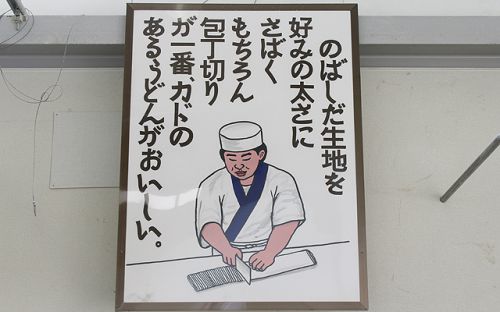 のばしだ生地を
好みの太さに
さばく
もちろん
包丁切り
が一番、カドの
あるうどんがおいしい。